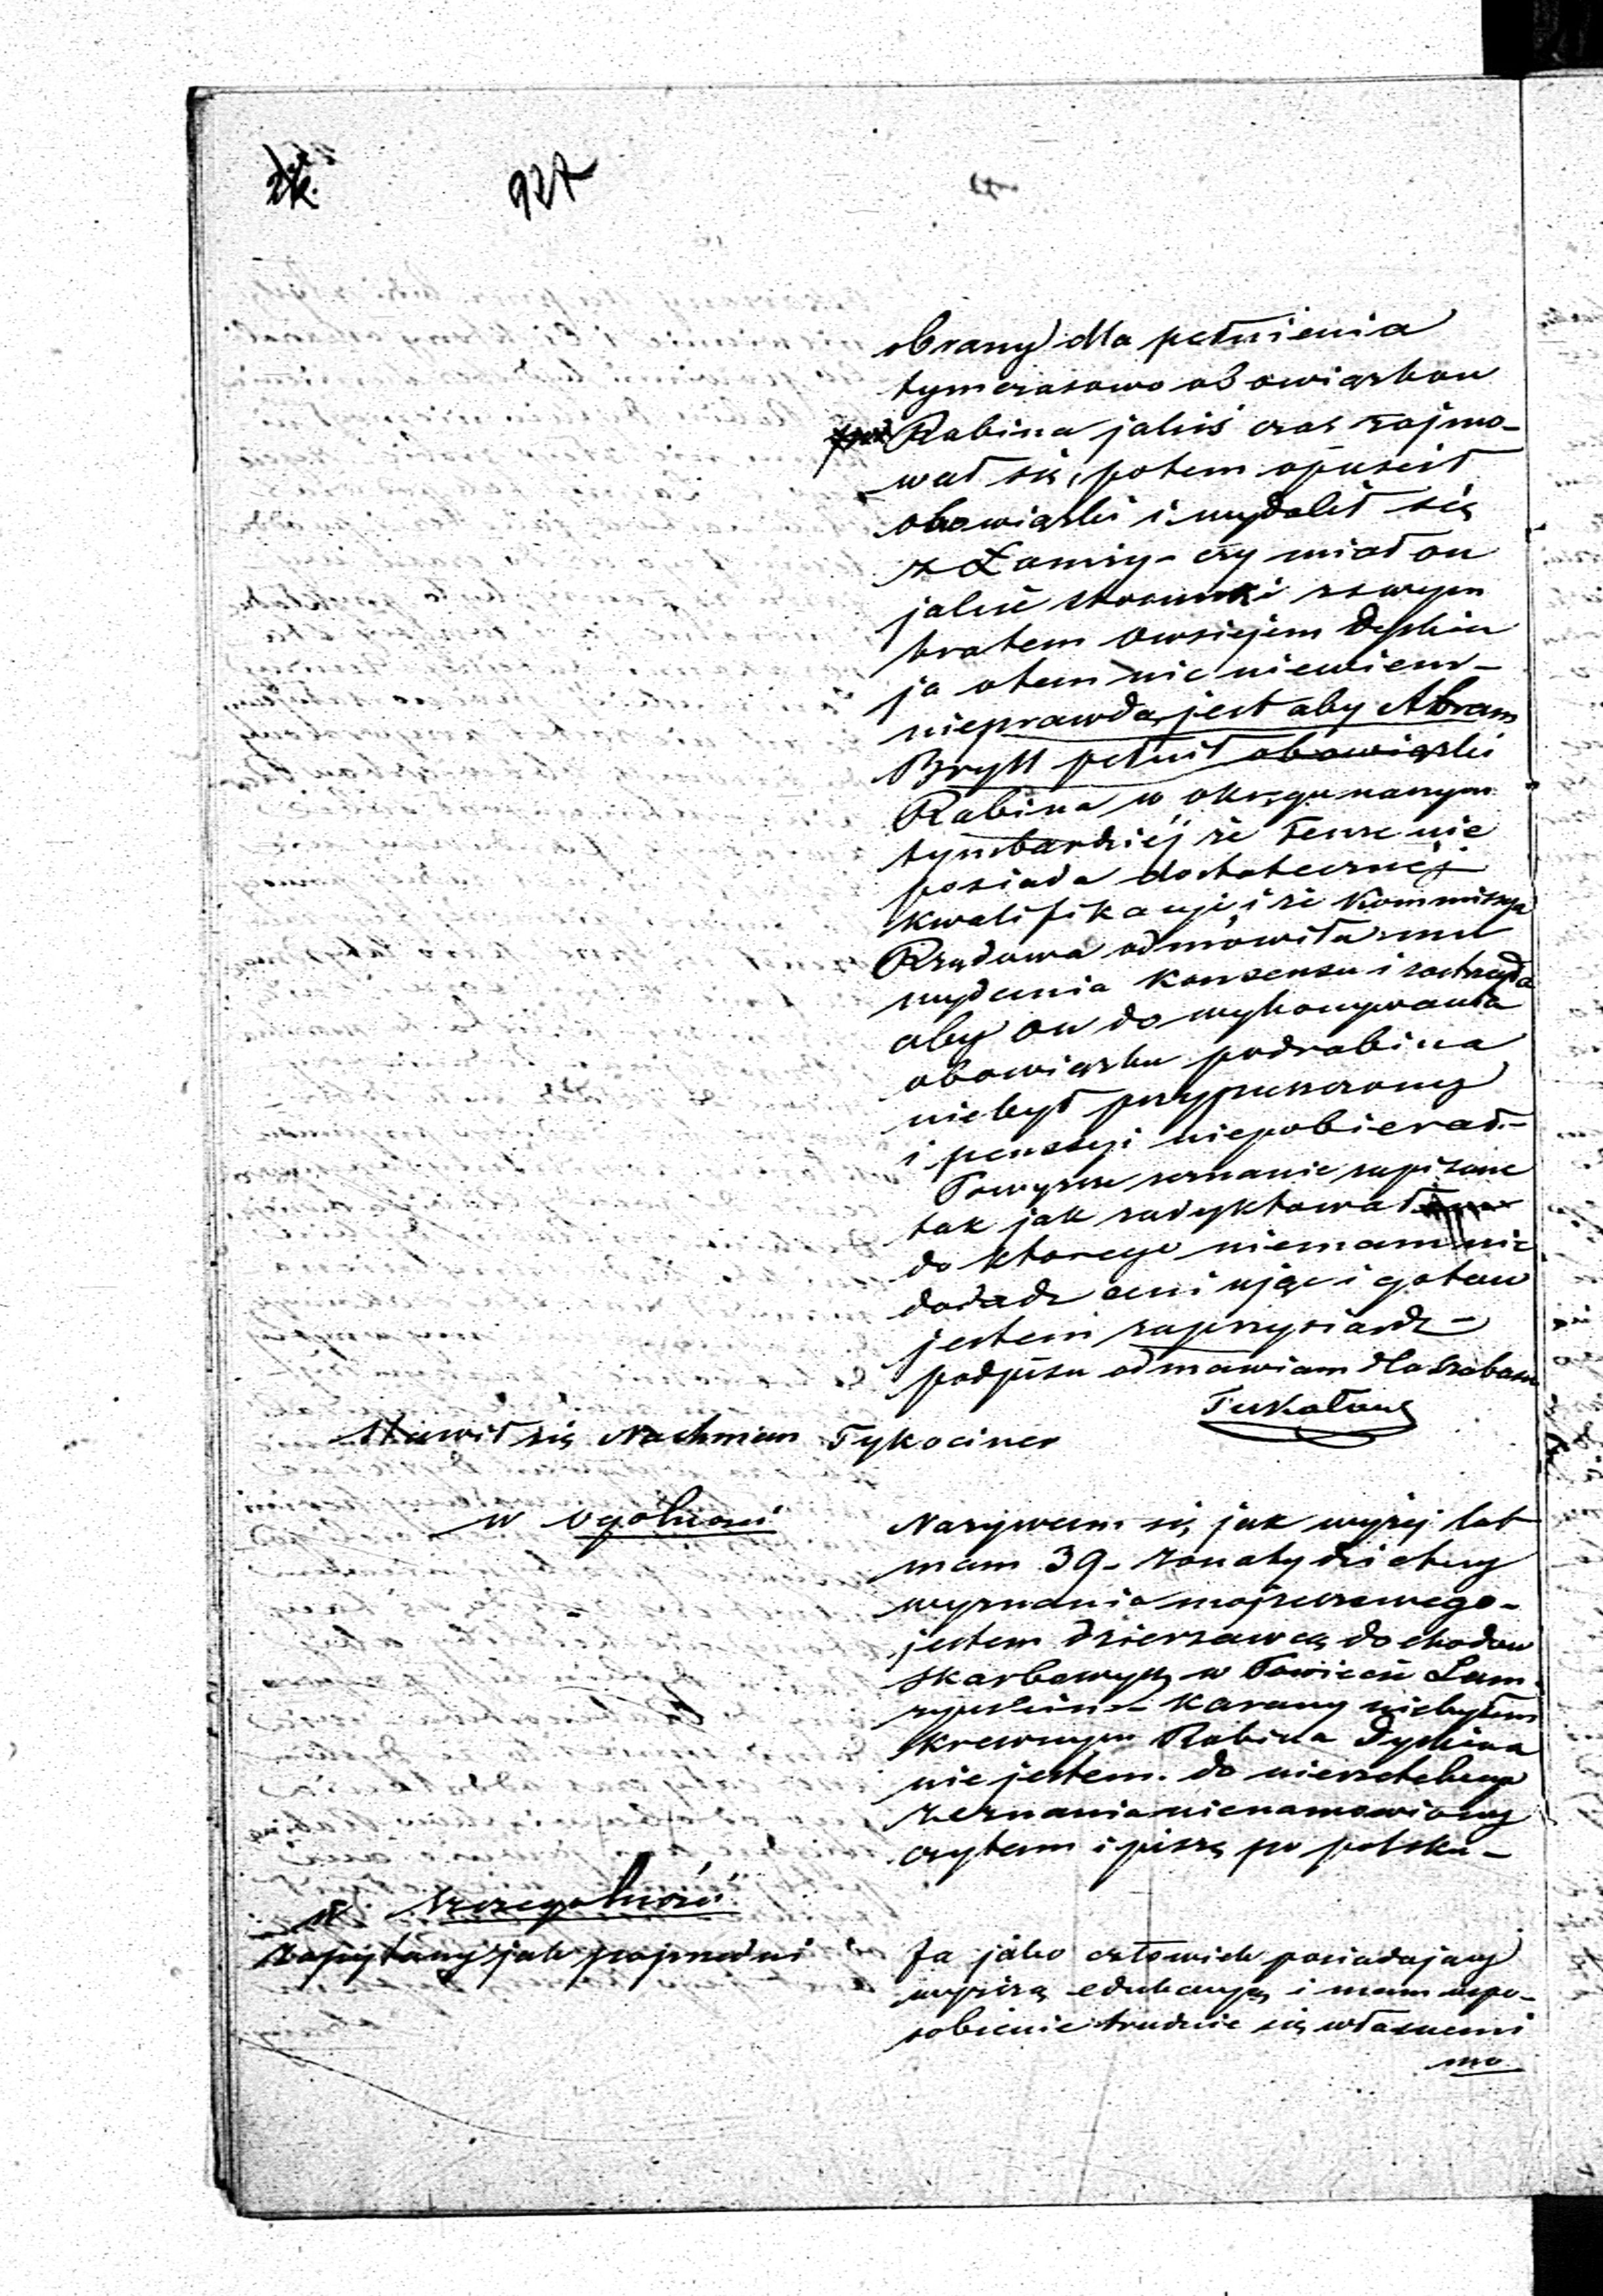 927
obrany dla pełnienia
tymczasowo obowiązkow
Rabina jakiś czas zajmo-
wał się, potem opuścił
obowiązki i wydalił się
z Łomży - czy miał on
jakie stosunki z swym
bratem Owsiejem Dyskin
ja otem nic niewiem -
nieprawdą jest aby Abram
Bryll pełnił obowiązki
Rabina w okręgu naszym
tymbardziej że tenże nie
posiada dostatecznej
kwalifikacyi i że Kommissya
Rządowa odmówiła mu
wydania konsensu i zastrzegła
aby on do wykonywania
obowiązku podrabina
niebył przypuszczony
i penssyi niepobierał. -
Powyższe zeznanie zapisane
tak jak zadyktowałem
do ktorego niemam nic
dodadz ani ująć i gotow
jestem zaprzysiądz -
podpisu odmawiam dla Szabasu
Stawił się Nachman Tykociner
w ogolności
Nazywam się jak wyżej lat
mam 39 - żonaty dzietny
wyznania mojżeszowego -
jestem dzierzawcą dochodow
skarbowych w Powiecie Łom-
żyńskim - karany niebyłem
krewnym Rabina Dyskina
nie jestem. do nierzetelnego
zeznania nienamowiony
czytam i piszę po polsku -
w szczegolności
zapytany jak poprzedni
Ja jako człowiek posiadający
wyższą edukacyą i mam uspo-
sobienie trudnię się własnemi